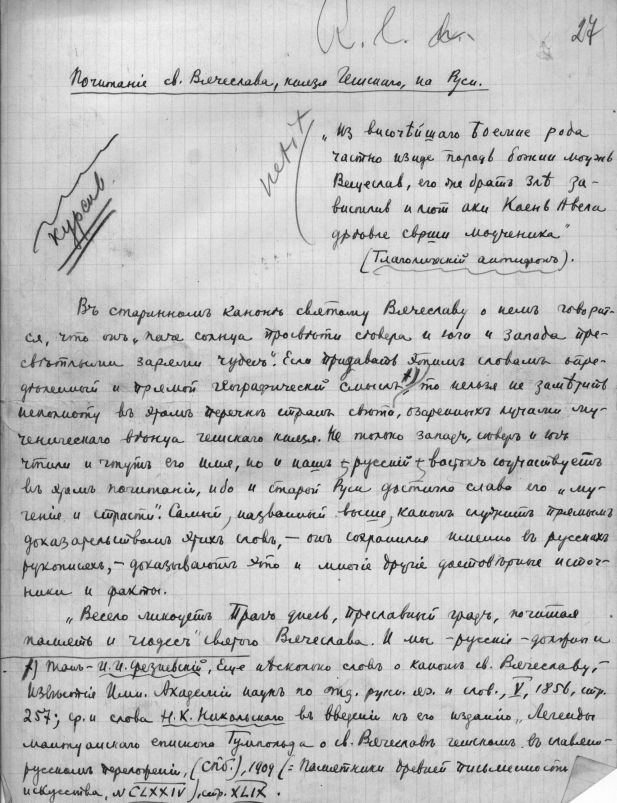 27
Почитаніе св. Вячеслава, князя Чешскаго, на Руси.
„Из височѣйшаго
рода
частно изиде породъ божии моужь
Вецеслав, его же братъ злѣ за-
вистилив и лют аки Каенъ Авела
сврши моученика"
(Глаголическій антифонъ).
петит
курсив
Въ старинномъ канонѣ святому Вячеславу о немъ говорит-
ся, что онъ „паче солнца просвѣти сѣвера и юга и запада пре-
свѣтлыми зарями чудесъ". Если придавать этимъ словамъ опре-
дѣленный и прямой географическій смыслъ 1) то нельзя не замѣтить
неполноту въ этомъ перечнѣ странъ свѣта, озаренныхъ лучами му-
ченическаго вѣнца чешскаго князя. Не только западъ, сѣверъ и югъ
чтили и чтутъ его имя, но и нашъ русскій востокъ соучаствуетъ
въ этомъ почитаніи, ибо и старой Руси достигло слава его „му-
ченіе и страсти". Самый, названный выше, канонъ служитъ прямымъ
доказательствомъ этихъ словъ, – онъ сохранился именно въ русскихъ
рукописяхъ, – доказываютъ это и многіе другіе достовѣрные источ-
ники и факты.
„Весело ликуетъ Прагъ днесь, преславный градъ, почитая
память и чюдесъ" святого Вячеслава. И мы – русскіе – должны и
1) Такъ – И. И. Срезневскій, Еще нѣсколько словъ о канонѣ св. Вячеславу, –
Извѣстія Имп. Академіи наукъ по отд. русск. яз. и слов., V, 1856, стр.
257; ср. и слова Н. К. Никольскаго въ введеніи къ его изданію „Легенды
мантуанскаго епископа Гумпольда о св. Вячеславѣ чешскомъ въ славяно-
русскомъ переложеніи, (СПб.), 1909 (= Памятники древней письменности
искусства, N CLXXIV), стр. XLIX.